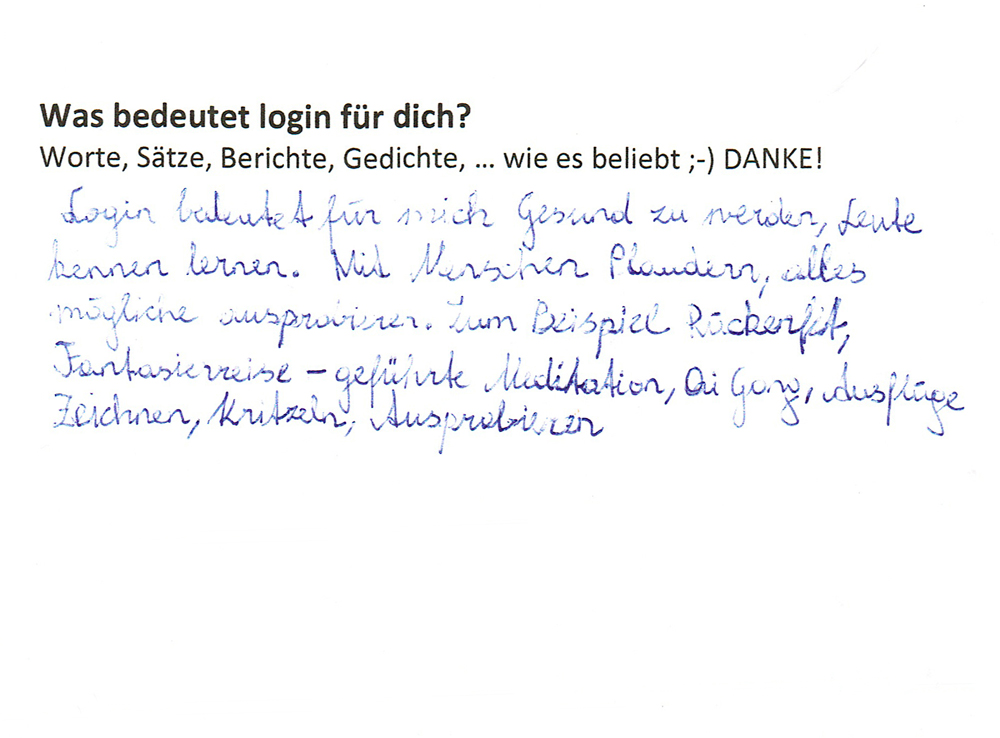 Was bedeutet login für dich?
Worte, Sätze, Berichte, Gedichte, ... wie es beliebt ;-) DANKE!
Login bedeutet für mich Gesund zu werden, Leute
kennen lernen. Mit Menschen Plaudern, alles
mögliche ausprobieren. Zum Beispiel Rückenfit,
Fantasiereise – geführte Meditation, Qi Gong, Ausflüge
Zeichnen, Kritzeln, Ausprobieren